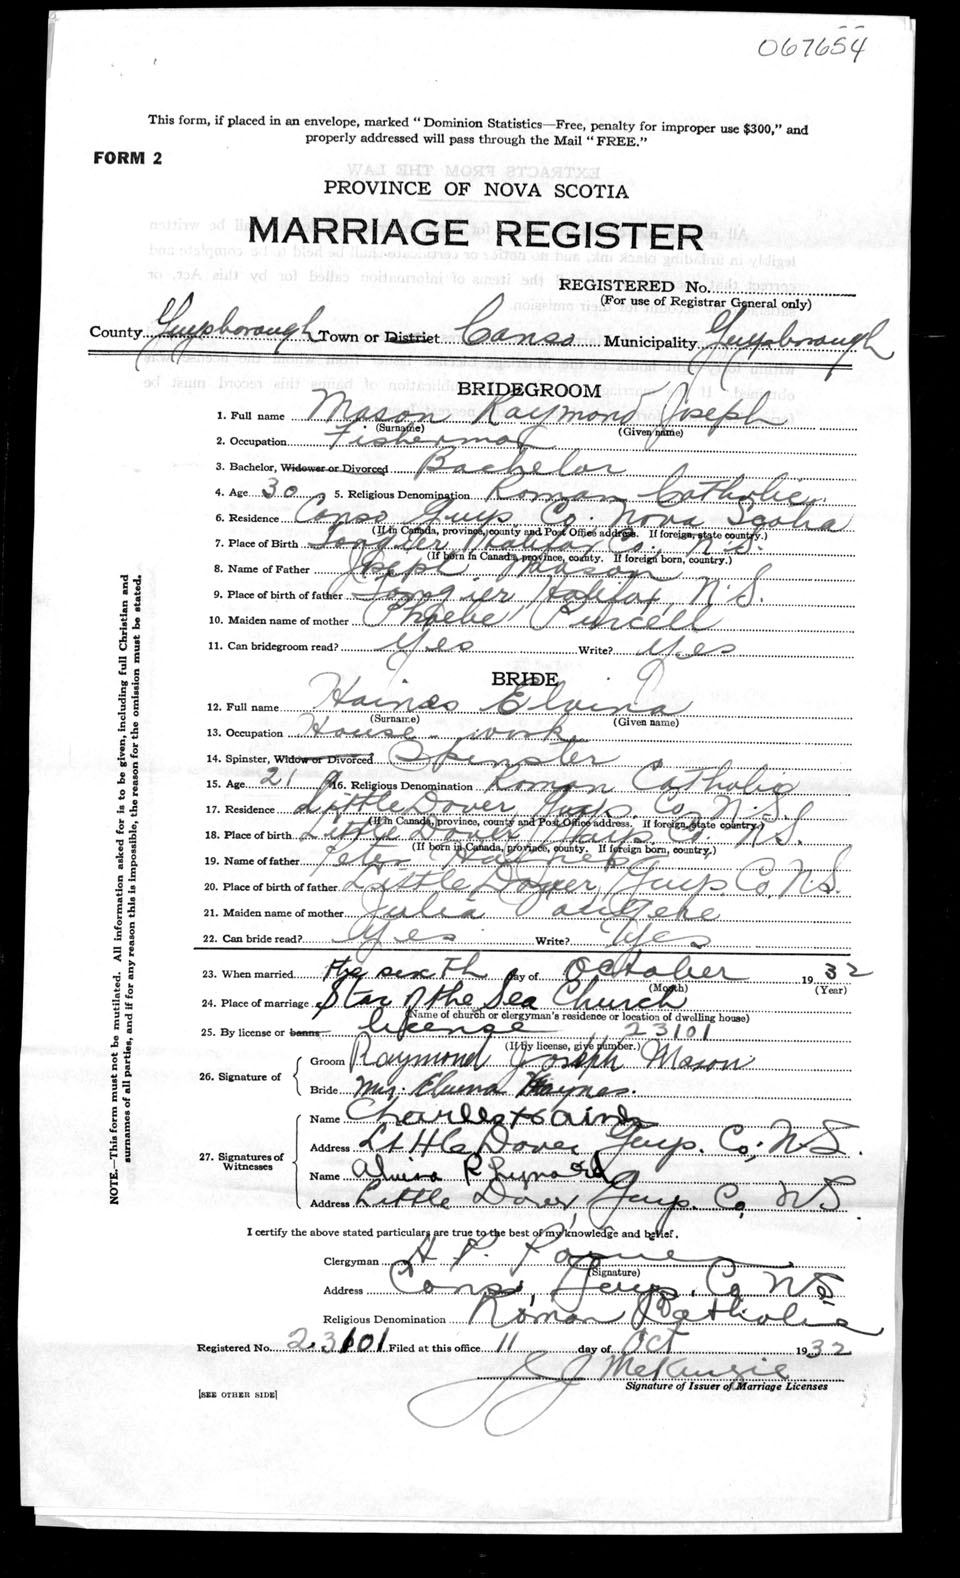 067654
This form, if placed in an envelope, marked "Dominion Statistics—Free, penalty for improper use $300," and
properly addressed will pass through the Mail "FREE."
FORM 2
PROVINCE OF NOVA SCOTIA
MARRIAGE REGISTER
REGISTERED No.
(For use of Registrar General only)
County Guysborough Town or District Canso Municipality Guysborough
BRIDEGROOM
1. Full name Mason Raymond Joseph
(Surname) (Given name)
2. Occupation Fisherman
3. Bachelor, Widower or Divorced Bachelor
4. Age 30 5. Religious Denomination Roman Catholic
6. Residence Canso Guys Co. Nova Scotia
(If in Canada, province, county and Post Office address. If foreign, state country.)
7. Place of Birth Tangier Halifax Co. N.S.
(If born in Canada, province, county. If foreign born, country.)
8. Name of Father Joseph Mason
9. Place of birth of father Tangier Halifax, N.S.
10. Maiden name of mother Phoebe Purcell
11. Can bridegroom read? Yes Write? Yes
BRIDE
12. Full name Haines Elvina
(Surname) (Given name)
13. Occupation House-work
14. Spinster, Widow or Divorced Spinster
15. Age 21 16. Religious Denomination Roman Catholic
17. Residence Little Dover Guys. Co. N.S.
(If in Canada, province, county and Post Office address. If foreign, state country.)
18. Place of birth Little Dover Guys. Co. N.S.
(If born in Canada, province, county. If foreign born, country.)
19. Name of father Peter Haines
20. Place of birth of father Little Dover, Guys Co, N.S.
21. Maiden name of mother Julia
22. Can bride read? Yes Write? Yes
23. When married the sixth day of October 1932
(Month) (Year)
24. Place of marriage Star of the Sea Church
(Name of church or clergyman's residence or location of dwelling house)
25. By license or banns license 23101
(If by license, give number.)
26. Signature of
Groom Raymond Joseph Mason
Bride Elvina Haynes.
27. Signatures of Witnesses
Name Charles Haines
Address Little Dover Guys. Co, N.S.
Name Rhynard
Address Little Dover, Guys. Co, N.S.
I certify the above stated particulars are true to the best of my knowledge and belief.
Clergyman H. P.
(Signature)
Address Canso, Guys. Co. N.S
Religious Denomination Roman Catholic
Registered No. 23101 Filed at this office 11 day of Oct 1932
McKenzie
Signature of Issuer of Marriage Licenses
[SEE OTHER SIDE]
NOTE.—This form must not be mutilated. All information asked for is to be given, including full Christian and
surnames of all parties, and if for any reason this is impossible, the reason for the omission must be stated.